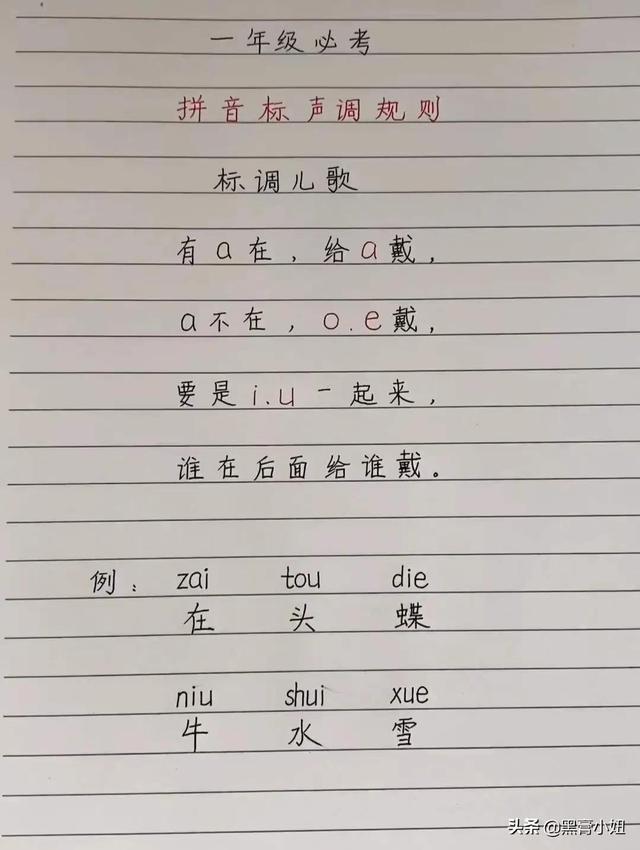 一年级必考
拼音标声调规则
标调儿歌
有a在，给a戴，
a不在，o.e戴，
要是i.u一起来，
谁在后面给谁戴。
例： zai tou die
在 头 蝶
niu shui xue
牛 水 雪
头条 @黑膏小姐